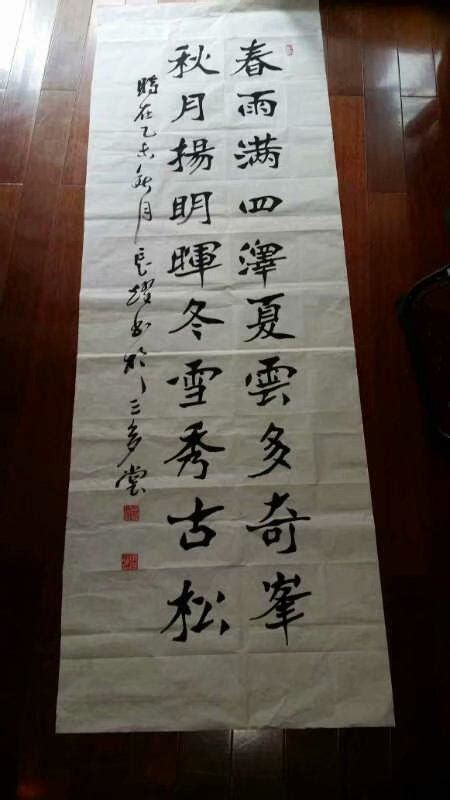 春雨满四澤夏雲多奇峯
秋月揚明暉冬雪秀古松
時在乙未秋月良耀书於三多堂